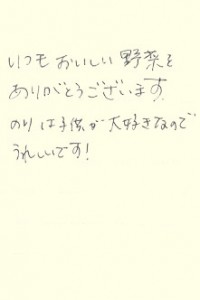 いつも おいしい 野菜を
ありがとうございます
のりは子供が大好きなので
うれしいです！